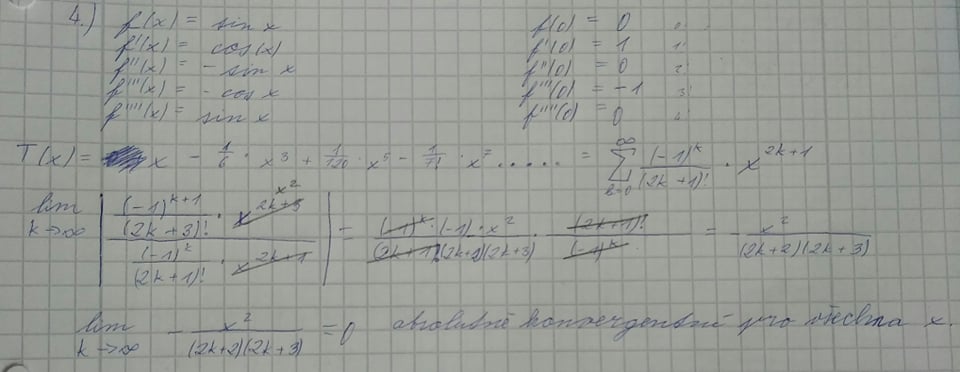 4.) f(x) = sin x f(0) = 0 0!
f'(x) = cos(x) f'(0) = 1 1!
f''(x) = - sin x f''(0) = 0 2!
f'''(x) = - cos x f'''(0) = -1 3!
f''''(x) = sin x f''''(0) = 0 4!
T(x) = x - 1/6 · x^3 + 1/120 · x^5 - 1/7! · x^7 ..... = ∑_{k=0}^{∞} (-1)^k/(2k+1)! · x^{2k+1}
lim_{k→∞} | ((-1)^{k+1}/(2k+3)! · x^{2k+3} x^2) / ((-1)^k/(2k+1)! · x^{2k+1}) | = ((-1)^k · (-1) · x^2)/((2k+1)!(2k+2)(2k+3)) · (2k+1)!/(-1)^k = - x^2/((2k+2)(2k+3))
lim_{k→∞} - x^2/((2k+2)(2k+3)) = 0 absolutně konvergentní pro všechna x.